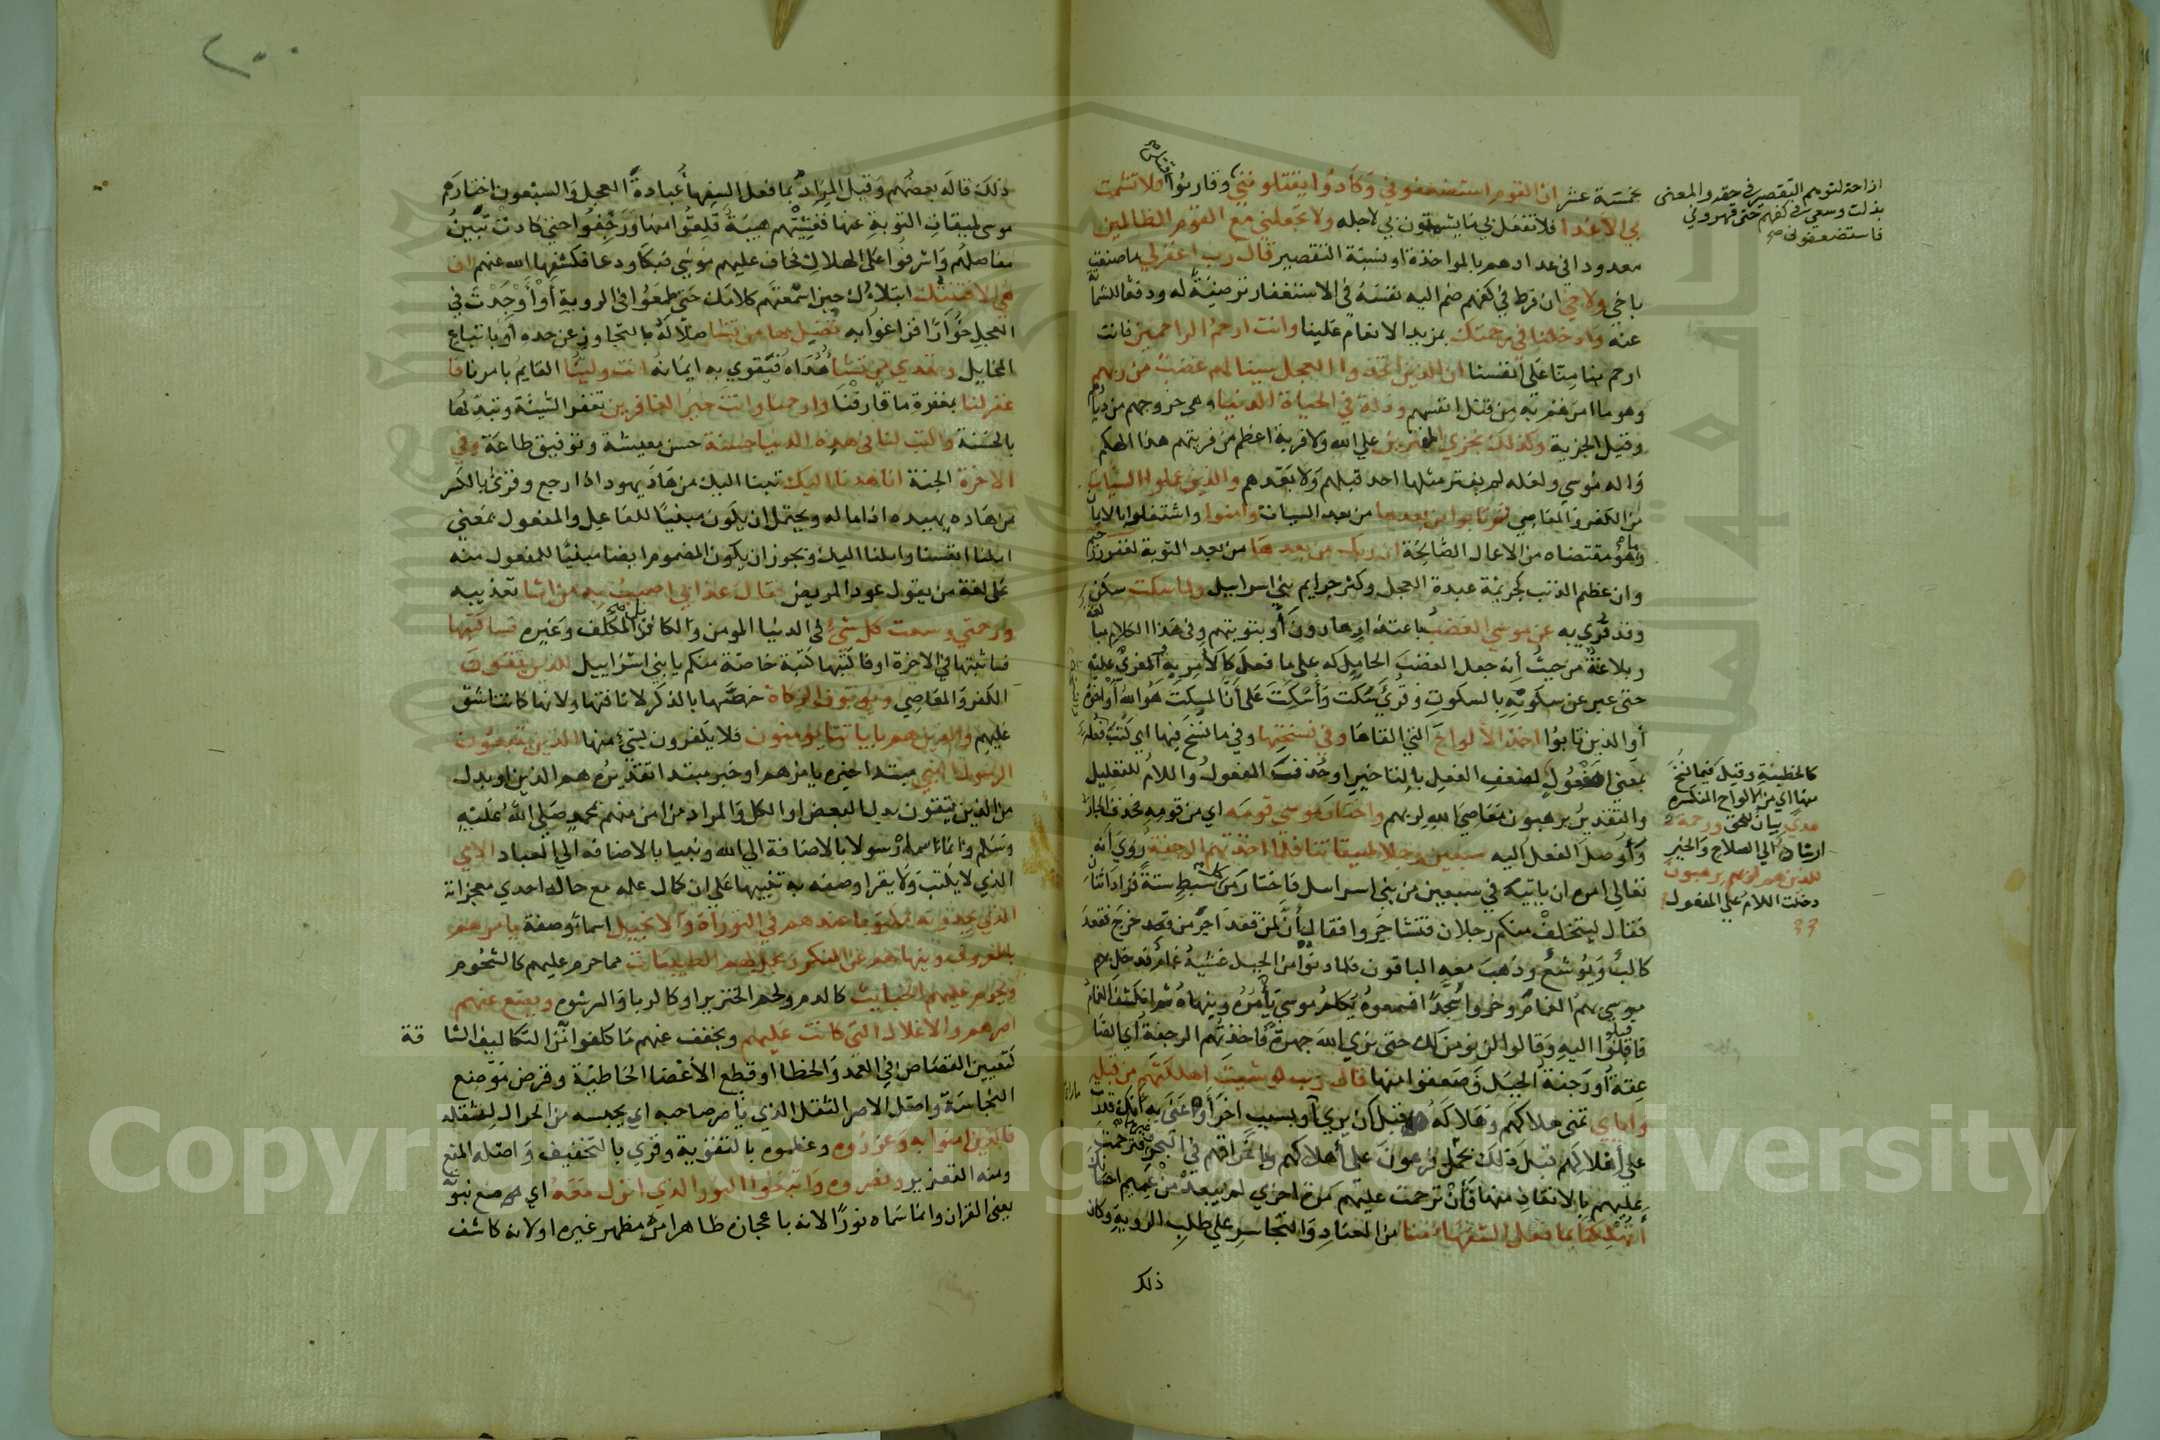 خمسة عشر ان القوم استضعفوني وكادوا يقتلونني وقاربوا قتلي فلا تشمت
بي الاعدا فلا تفعل بي ما يشمتون بي لاجله ولا تجعلني مع القوم الظالمين
معدودا في عدادهم بالمواخذة او نسبة التقصير قال رب اغفرلي ما صنعت
باخي ولاخي ان فرط في كفهم ضم اليه نفسه في الاستغفار ترضية له ودفعا للشماتة
عنه وادخلنا في رحمتك بمزيد الانعام علينا وانت ارحم الراحمين فانت
ارحم بنا منا على انفسنا ان الذين اتخذوا العجل سينالهم غضب من ربهم
وهو ما امرهم به من قتل انفسهم وذلة في الحياة الدنيا وهي خروجهم من ديارهم
وقيل الجزية وكذلك نجزي المفترين على الله ولا فرية اعظم من فريتهم هذا الهكم
واله موسي ولعله لم يفتر مثلها احد قبلهم ولا بعدهم والذين عملوا السيات
من الكفر والمعاصي ثم تابوا من بعدها من بعد السيات وامنوا واشتغلوا بالايمان
وما هو مقتضاه من الاعمال الصالحة ان ربك من بعدها من بعد التوبة لغفور رحيم
وان عظم الذنب كجريمة عبدة العجل وكثر جرايم بني اسرايل ولما سكت سكن
وقد قري به عن موسي الغضب باعتذار هارون أو بتوبتهم وفي هذا الكلام مبالغة
وبلاغة من حيث أنه جعل الغضب الحامل له على ما فعل كالآمر به المغري عليه
حتى عبر عن سكونه بالسكوت وقري سكت وأسكت على أن المسكت هو الله أو اخوه
أو الذين تابوا اخذ الألواح التي القاها وفي نسختها وفي ما نسخ فيها اي كتب فعلة
بمعنى المفعول لضعف الفعل بالتاخير او حذف المفعول واللام للتعليل
والتقدير يرهبون معاصي الله لربهم واختار موسي قومه اي من قومه فحذف الجار
وأوصل الفعل اليه سبعين رجلا لميقاتنا فلما اخذتهم الرجفة روي أنه
تعالي امره ان ياتيه في سبعين من بني اسراسل فاختار من كل سبط ستة فزاد اثنان
فقال ليتخلف منكم رجلان فتشاجروا فقال إن لمن قعد اجر من خرج فقعد
كالب ويوشع وذهب معه الباقون فلما دنوا من الجبل غشيه غمام فدخل
موسي بهم الغمام وخروا سجدا فسمعوه يكلم موسي يأمره وينهاه ثم انكشف الغمام
فاقبلوا اليه وقالوا لن نومن لك حتى نري الله جهرة فاخذتهم الرجفة أي الصا
عقة أو رجفة الجبل فصعقوا منها قال رب لو شيت اهلكتهم من قبل
واياي تمني هلاكهم وهلاكه قبل أن يري أو بسبب اخر أو عني به أنك قدرت
علي أهلاكهم قبل ذلك بحمل فرعون على أهلاكهم وإغراقهم في البحر فترحمت
عليهم بالانقاذ منها فأن ترحمت عليهم مرة اخري لم يبعد من عميم احسانك
أتهلكنا بما فعل السفهاء منا من العناد والتجاسر علي طلب الروية وكان
ذلك
ازاحة لتوهم التقصير في حقه والمعنى
بذلت وسعي في كفهم حتى قهروني
فاستضعفوني صح
كالخطبة وقيل فيما نسخ
منها اي من الالواح المنكسرة
هدى بيان للحق ورحمة
ارشاد الي الصلاح والخير
للذين هم لربهم يرهبون
دخلت اللام علي المفعول
٢٠٠
ذلك قاله بعضهم وقيل المراد بما فعل السفها عبادة العجل والسبعون اختارهم
موسى لميقات التوبة عنها فغشيتهم هيبة قلقوا منها ورجفوا حتى كادت تبين
مفاصلهم واشرفوا على الهلاك فخاف عليهم موسي فبكا ودعا فكشفها الله عنهم ان
هي الا فتنتك ابتلاءك حين اسمعتهم كلامك حتى طمعوا في الروية أو أوجدت في
العجل خوارا فزاغوا به تضل بها من تشا ضلاله بالتجاوز عن حده أو باتباع
المخايل وتهدي من تشا هداه فيقوي به ايمانه انت ولينا القايم بامرنا فا
غفر لنا بمغفرة ما قارفنا وارحمنا وانت خير الغافرين تغفر السيئة وتبدلها
بالحسنة واكتب لنا في هذه الدنيا حسنة حسن معيشة وتوفيق طاعة وفي
الاخرة الجنة انا هدنا اليك تبنا اليك من هاد يهود اذا رجع وقري بالكسر
من هاده يهيده اذا اماله ويحتمل ان يكون مبنيا للفاعل والمفعول بمعني
املنا انفسنا واملنا اليك ويجوز ان يكون المضموم ايضا مبنيا للمفعول منه
على لغة من يقول عود المريض قال عذابي اصيب به من اشا تعذيبه
ورحمتي وسعت كل شئ في الدنيا المومن والكافر بل المكلف وغيره فساكتبها
فساثبتها في الاخرة او فاكتبها كتبة خاصة منكم يا بني اسراييل للذين يتقون
الكفر والمعاصي ويوتون الزكاة خصها بالذكر لانافتها ولانها كانت اشق
عليهم والذين هم باياتنا يومنون فلا يكفرون بشئ منها الذين يتبعون
الرسول النبي مبتدا خبره يامرهم او خبر مبتدا تقديره هم الذين او بدل
من الذين يتقون بدل البعض او الكل والمراد من امن منهم بمحمد صلى الله عليه
وسلم وانما سماه رسولا بالاضافة الي الله ونبيا بالاضافة الي العباد الامي
الذي لا يكتب ولا يقرا وصفه به تنبيها على ان كمال علمه مع حاله احدي معجزاته
الذي يجدونه مكتوبا عندهم في التوراة والانجيل اسما وصفة يامرهم
بالمعروف وينهاهم عن المنكر ويحل لهم الطيبات مما حرم عليهم كالشحوم
ويحرم عليهم الخبايث كالدم ولحم الخنزير او كالربا والرشوه ويضع عنهم
اصرهم والاغلال التي كانت عليهم ويخفف عنهم ما كلفوا من التكاليف الشا قة
كتعيين القصاص في العمد والخطا او قطع الأعضا الخاطئة وقرض موضع
النجاسة واصل الاصر الثقل الذي ياصر صاحبه اي يحبسه من الحراك لثقله
فالذين امنوا به وعزروه وعظموه بالتقوية وقري بالتخفيف واصله المنع
ومنه التعزير ونصروه واتبعوا النور الذي انزل معه اي مع نبوته
يعني القران وانما سماه نورا لانه باعجازه ظاهرا امره مظهر غيره او لانه كاشف
Copyright © King Saud University